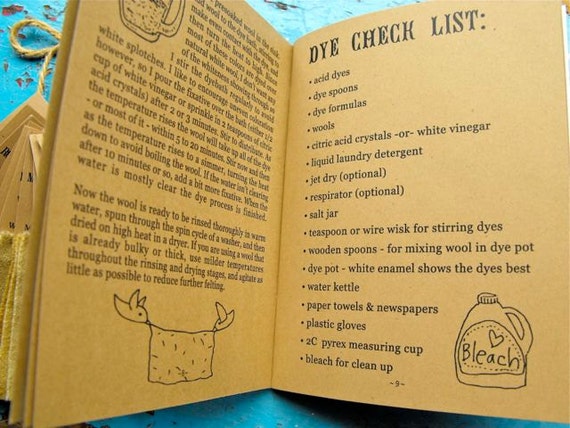 presoaked wool in the dish
and wool to the dye bath. Then to
make turn the heat to high and
then most of these colors are for most
of the wool white wool. I don't want any
white splotches. I like to encourage uneven coloration
however, so I pour the fixative into the bath (either 1/2
cup of white vinegar or sprinkle in 2 teaspoons of citric
acid crystals) after 2 or 3 minutes. Stir to distribute. As
the temperature rises the wool will take up all of the dye
- or most of it - within 5 to 20 minutes. Stir now and then
as the temperature rises to a simmer, turning the heat
down to avoid boiling the wool. If the water isn't clearing
after 10 minutes or so, add a bit more fixative. When the
water is mostly clear the dye process is finished.
Now the wool is ready to be rinsed thoroughly in warm
water, spun through the spin cycle of a washer, and then
dried on high heat in a dryer. If you are using a wool that
is already bulky or thick, use milder temperatures
throughout the rinsing and drying stages, and agitate as
little as possible to reduce further felting.
DYE CHECK LIST:
• acid dyes
• dye spoons
• dye formulas
• wools
• citric acid crystals -or- white vinegar
• liquid laundry detergent
• jet dry (optional)
• respirator (optional)
• salt jar
• teaspoon or wire wisk for stirring dyes
• wooden spoons - for mixing wool in dye pot
• dye pot - white enamel shows the dyes best
• water kettle
• paper towels & newspapers
• plastic gloves
• 2C pyrex measuring cup
• bleach for clean up
~9~
Bleach